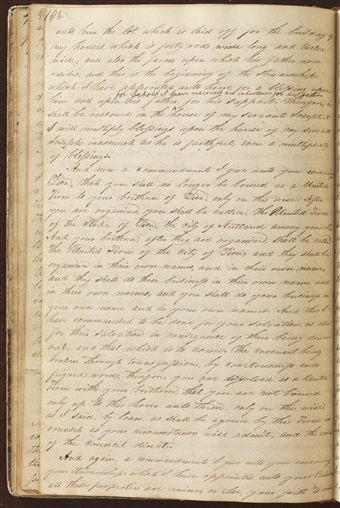 104
unto him the lot which is laid off for the building of
my houses, which is forty rods long and twelve
wide, and also the farm upon which his father now
resides and this is the beginning of the stewardship
which I have appointed unto him for a blessing upon
for behold I have reserved an inheritance for his father
him and upon his father, for his support therefore he
shall be reckoned in the house of my servant Joseph &
I will multiply blessings upon the house of my servant
Joseph inasmuch as he is faithful, even a multiplicity
of blessings.
And now a commandment I give unto you concerning
Zion, that you shall no longer be bound as a United
Firm to your brethren of Zion, only on this wise. After
you are organized you shall be called the United Firm
of the Stake of Zion, the city of Kirtland among yourselves
And your brethren after they are organized shall be called
the United Firm of the City of Zion, and they shall be
organized in their own names, and in their own name
and they shall do their business in their own name and
in their own names, and you shall do your business in
your own name and in your own names. And this I
have commanded to be done for your salvation, as also
for their salvation in consequence of their being driven
out, and that which is to come, the covenant being
broken through transgression, by covetousness and
feigned words; therefore you are dissolved as a United
Firm with your brethren, that you are not bound
only up to this hour unto them, only on this wise,
as I said, by loan, as shall be agreed by this Firm in
council as your circumstances will admit, and the voice
of the council direct.
And again, a commandment I give unto you concerning
your stewardship which I have appointed unto you. Behold
all these properties are mine or else, your faith is vain